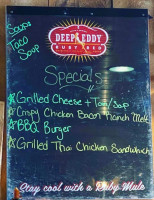 Soups
Taco
Soup
DEEP EDDY
RUBY RED
Specials
Grilled Cheese + Tom/Sap
Crispy Chicken Bacon Ranch Melt
BBQ Burger
Grilled Thai Chicken Sandwich
Stay cool with a Ruby Mule